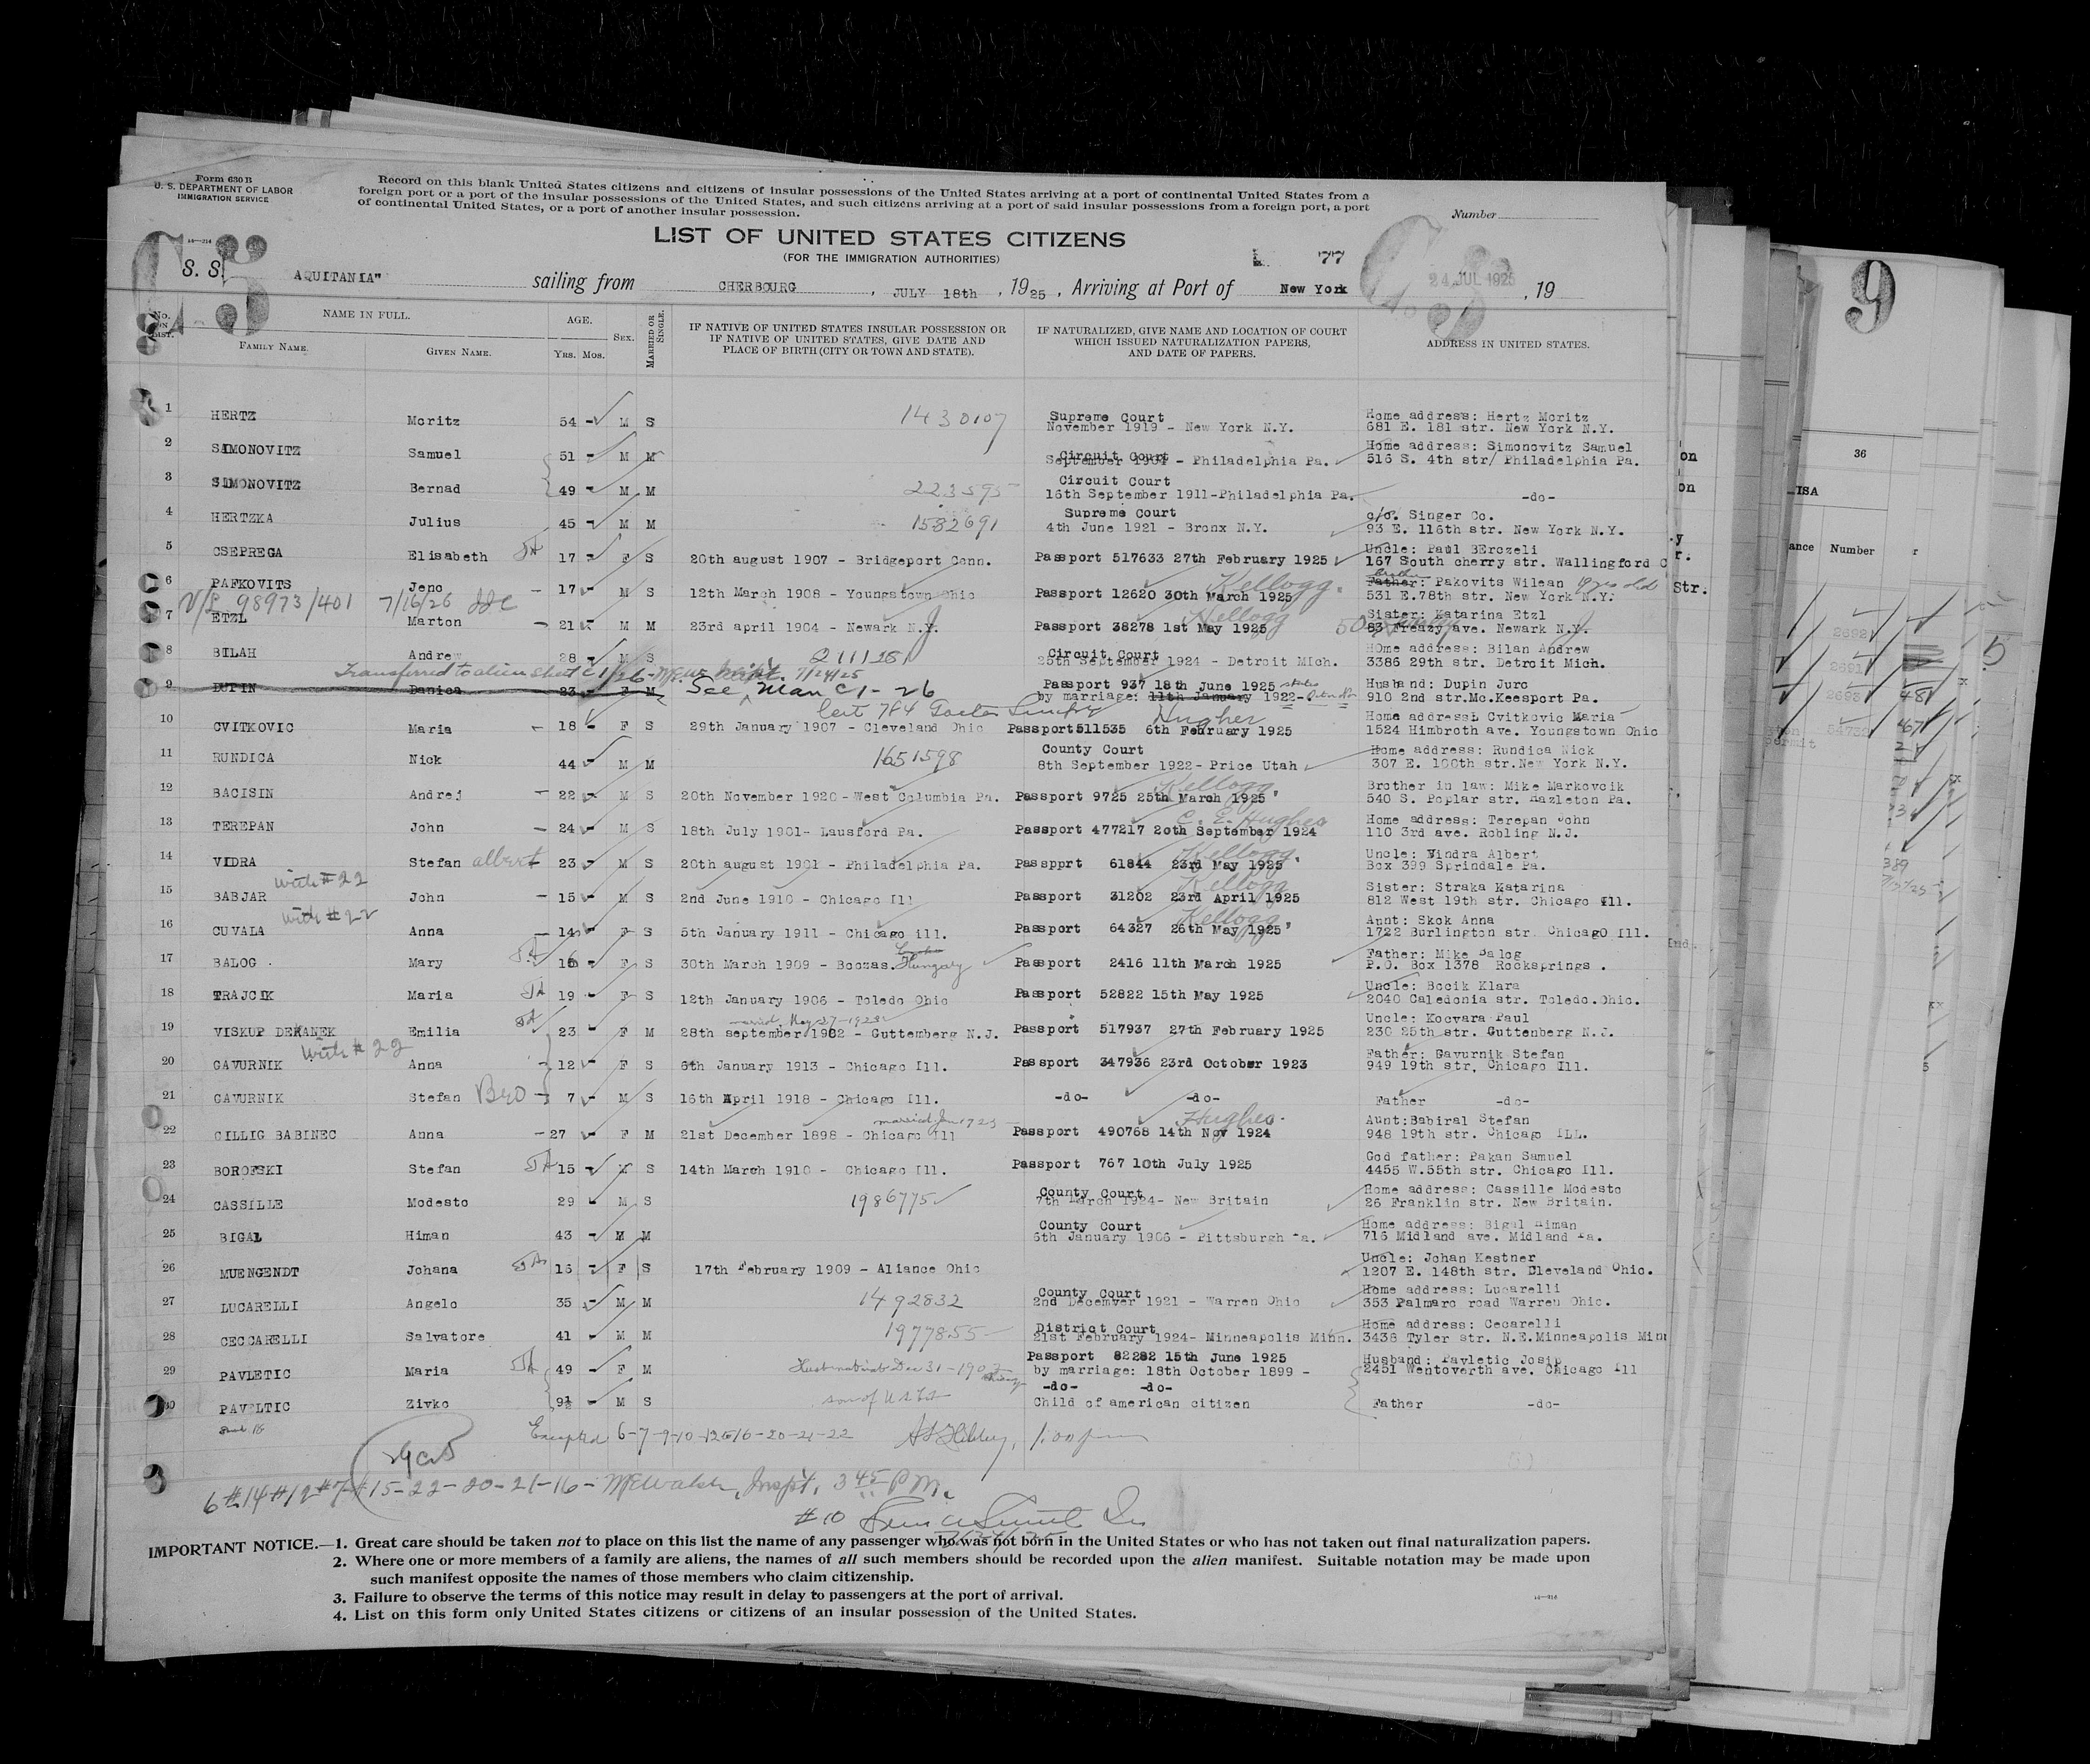 Form 630 B
U. S. DEPARTMENT OF LABOR
IMMIGRATION SERVICE
Record on this blank United States citizens and citizens of insular possessions of the United States arriving at a port of continental United States from a
foreign port or a port of the insular possessions of the United States, and such citizens arriving at a port of said insular possessions from a foreign port, a port
of continental United States, or a port of another insular possession.
Number
LIST OF UNITED STATES CITIZENS
(FOR THE IMMIGRATION AUTHORITIES)
77
S. S. AQUITANIA" sailing from CHERBOURG, JULY 18th, 1925, Arriving at Port of New York 24 JUL 1925, 19
No. ON LIST. NAME IN FULL. AGE. SEX. MARRIED OR SINGLE. IF NATIVE OF UNITED STATES INSULAR POSSESSION OR IF NATIVE OF UNITED STATES, GIVE DATE AND PLACE OF BIRTH (CITY OR TOWN AND STATE). IF NATURALIZED, GIVE NAME AND LOCATION OF COURT WHICH ISSUED NATURALIZATION PAPERS, AND DATE OF PAPERS. ADDRESS IN UNITED STATES.
FAMILY NAME. GIVEN NAME. YRS. MOS.
1 HERTZ Moritz 54 - M S 1430107 Supreme Court November 1919 - New York N.Y. Home address: Hertz Moritz 681 E. 181 str. New York N.Y.
2 SIMONOVITZ Samuel 51 - M M Circuit Court September 1904 - Philadelphia Pa. Home address: Simonovitz Samuel 516 S. 4th str/ Philadelphia Pa.
3 SIMONOVITZ Bernad 49 - M M 223595 Circuit Court 16th September 1911-Philadelphia Pa. -do-
4 HERTZKA Julius 45 - M M 1532691 Supreme Court 4th June 1921 - Bronx N.Y. c/o. Singer Co. 93 E. 116th str. New York N.Y.
5 CSEPREGA Elisabeth 17 - F S 20th august 1907 - Bridgeport Conn. Passport 517633 27th February 1925 Uncle: Paul BErczeli 167 South cherry str. Wallingford C
6 PAFKOVITS Jeno - 17 - M S 12th March 1908 - Youngstown Ohio Passport 12620 30th March 1925 Kellogg. Father: brother Pakovits Wilean 19 yrs old 531 E.78th str. New York N.Y.
V/L 98973/401 7/16/26
7 ETZL Marton - 21 - M M 23rd april 1904 - Newark N.J. Passport 38278 1st May 1925 Kellogg Sister: Katarina Etzl 83 Freazy ave. Newark N.Y.
8 BILAH Andrew 28 - M S 2111281 Circuit Court 25th September 1924 - Detroit Mich. HOme address: Bilan Andrew 3386 29th str. Detroit Mich.
Transferred to alien sheet C 1/26 - 7/24/25
9 DUPIN Danica 23 - F M See Man C 1 - 26 Passport 937 18th June 1925 by marriage: 11th January 1922- Husband: Dupin Juro 910 2nd str.Mc.Keesport Pa.
10 CVITKOVIC Maria - 18 - F S 29th January 1907 - Cleveland Ohio Passport 511535 6th February 1925 Hughes Home address: Cvitkovic Maria 1524 Himbroth ave. Youngstown Ohio
11 RUNDICA Nick 44 - M M 1651598 County Court 8th September 1922- Price Utah Home address: Rundica Nick 307 E. 100th str.New York N.Y.
12 BACISIN Andrej - 22 - M S 20th November 1920 - West Columbia Pa. Passport 9725 25th March 1925 Kellogg Brother in law: Mike Markovcik 540 S. Poplar str. Hazleton Pa.
13 TEREPAN John - 24 - M S 18th July 1901- Lausford Pa. Passport 477217 20th September 1924 C. E. Hughes Home address: Terepan John 110 3rd ave. Robling N.J.
14 VIDRA Stefan albert 23 - M S 20th august 1901 - Philadelphia Pa. Passpprt 61844 23rd May 1925 Kellogg Uncle: Vindra Albert Box 399 Sprindale Pa.
with #22
15 BABJAR John - 15 - M S 2nd June 1910 - Chicago Ill Passport 31202 23rd April 1925 Kellogg Sister: Straka Katarina 812 West 19th str. Chicago Ill.
with #22
16 CUVALA Anna - 14 - F S 5th January 1911 - Chicago ill. Passport 64327 26th May 1925 Kellogg Aunt: Skok Anna 1722 Burlington str. ChicagO Ill.
17 BALOG Mary 16 - F S 30th March 1909 - Boczas. Hungary Passport 2416 11th March 1925 Father: Mike Balog P.O. Box 1378 Rocksprings .
18 TRAJCIK Maria 19 - F S 12th January 1906 - Toledo Ohio Passport 52822 15th May 1925 Uncle: Bocik Klara 2040 Caledonia str. Toledo.Ohio.
19 VISKUP DEKANEK Emilia 23 - F M 28th september 1902 - Guttemberg N.J. Passport 517937 27th February 1925 Uncle: Kocvara Paul 230 25th str. Guttenberg N.J.
with #22
20 GAVURNIK Anna - 12 - F S 6th January 1913 - Chicago Ill. Passport 347936 23rd October 1923 Father: Gavurnik Stefan 949 19th str, Chicago Ill.
21 GAVURNIK Stefan Bro - 7 - M S 16th April 1918 - Chicago Ill. -do- -do- Father -do-
22 CILLIG BABINEC Anna - 27 - F M 21st December 1898 - Chicago Ill Passport 490768 14th Nov 1924 Hughes. Aunt:Babiral Stefan 948 19th str. Chicago ILL.
23 BOROFSKI Stefan 15 - M S 14th March 1910 - Chicago Ill. Passport 767 10th July 1925 God father: Pakan Samuel 4455 W.55th str. Chicago Ill.
24 CASSILLE Modesto 29 - M S 1986775 County Court 7th March 1924- New Britain Home address: Cassille Modesto 26 Franklin str. New Britain.
25 BIGAL Himan 43 - M M County Court 6th January 1906 - Pittsburgh Pa. Home address: Bigal Himan 716 Midland ave. Midland Pa.
26 MUENGENDT Johana 16 - F S 17th February 1909 - Aliance Ohio Uncle: Johan Kestner 1207 E. 148th str. Cleveland Ohio.
27 LUCARELLI Angelo 35 - M M 1492832 County Court 2nd Decemver 1921 - Warren Ohio Home address: Lucarelli 353 Palmaro road Warren Ohio.
28 CECCARELLI Salvatore 41 - M M 1977855 District Court 21st February 1924- Minneapolis Minn. Home address: Cecarelli 3438 Tyler str. N.E.Minneapolis Min
29 PAVLETIC Maria 49 - F M Passport 82282 15th June 1925 by marriage: 18th October 1899 - Husband: Pavletic Josip 2451 Wentoverth ave. Chicago Ill
30 PAVELTIC Zivko 9½ - M S son of -do- -do- Child of american citizen Father -do-
Excepted 6-7-9-10-12-16-20-21-22
6 #14 #12 #7 #15-22-20-21-16 - McWalsh, Inspt. 3 45 P.M.
#10
IMPORTANT NOTICE.—1. Great care should be taken not to place on this list the name of any passenger who was not born in the United States or who has not taken out final naturalization papers.
2. Where one or more members of a family are aliens, the names of all such members should be recorded upon the alien manifest. Suitable notation may be made upon
such manifest opposite the names of those members who claim citizenship.
3. Failure to observe the terms of this notice may result in delay to passengers at the port of arrival.
4. List on this form only United States citizens or citizens of an insular possession of the United States.
9
36
Number